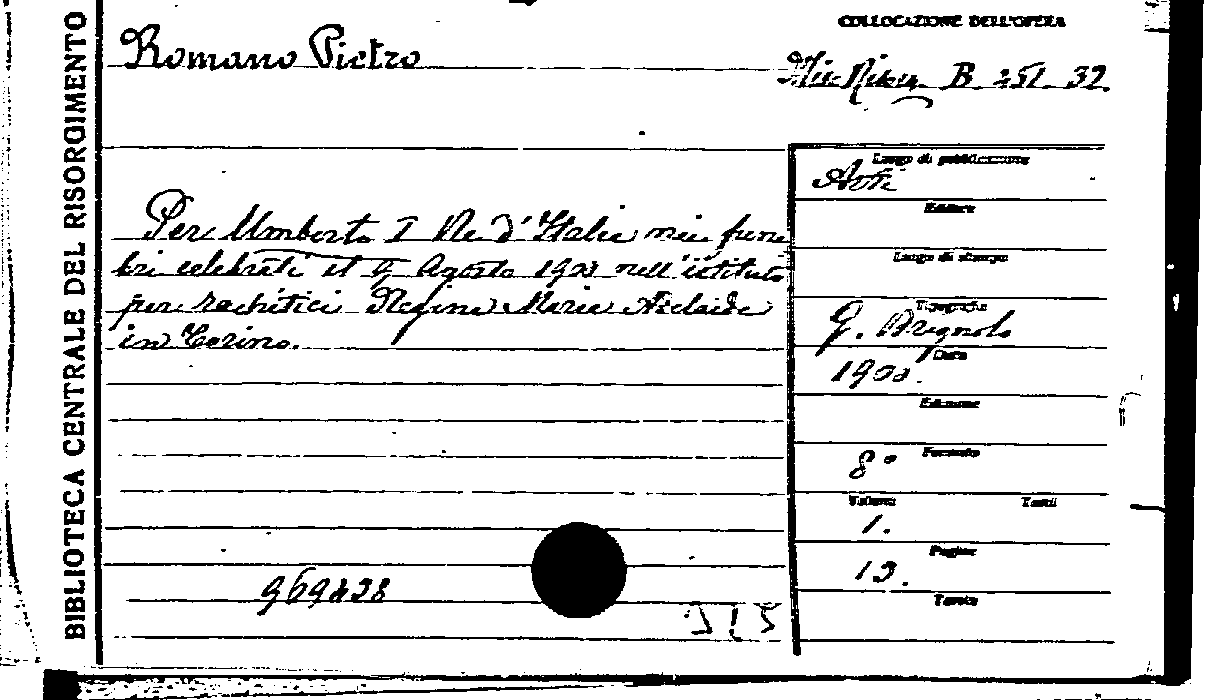 BIBLIOTECA CENTRALE DEL RISORGIMENTO
Romano Pietro
COLLOCAZIONE DELL'OPERA
B. 251. 32.
Per Umberto I Re d'Italia nei fune
bri celebrati il 9 Agosto 1900 nell'istituto
per rachitici Regina Maria Adelaide
in Torino.
Luogo di pubblicazione
Asti
Editore
Luogo di stampa
Tipografia
G. Brignolo
Data
1900.
Edizione
Formato
8°
Volumi
Tomi
1.
Pagine
13.
Tavole
969438